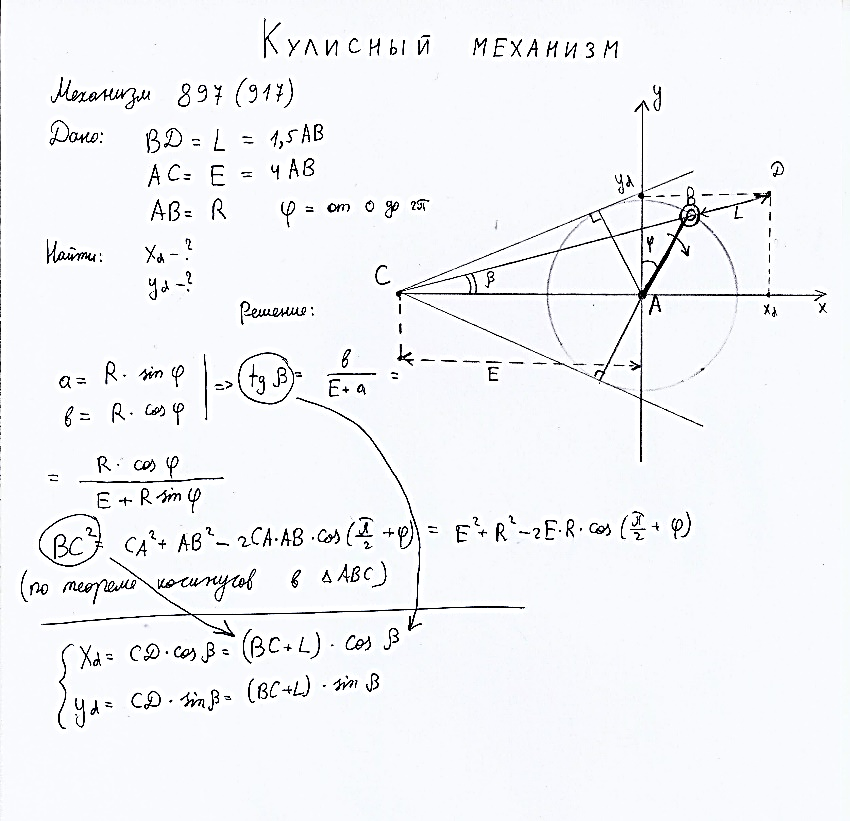 Кулисный механизм
Механизм 897 (917)
Дано: BD = L = 1,5 AB
AC = E = 4 AB
AB = R φ = от 0 до 2π
Найти: Xd - ?
yd - ?
Решение:
y
yd
D
B
L
φ
C
β
A
Xd
x
E
a = R · sin φ
b = R · cos φ
=> tg β = b / (E + a) =
= R · cos φ / (E + R sin φ)
BC² = CA² + AB² - 2CA·AB·cos(π/2 + φ) = E² + R² - 2E·R·cos(π/2 + φ)
(по теореме косинусов в △ABC)
Xd = CD · cos β = (BC + L) · cos β
yd = CD · sin β = (BC + L) · sin β